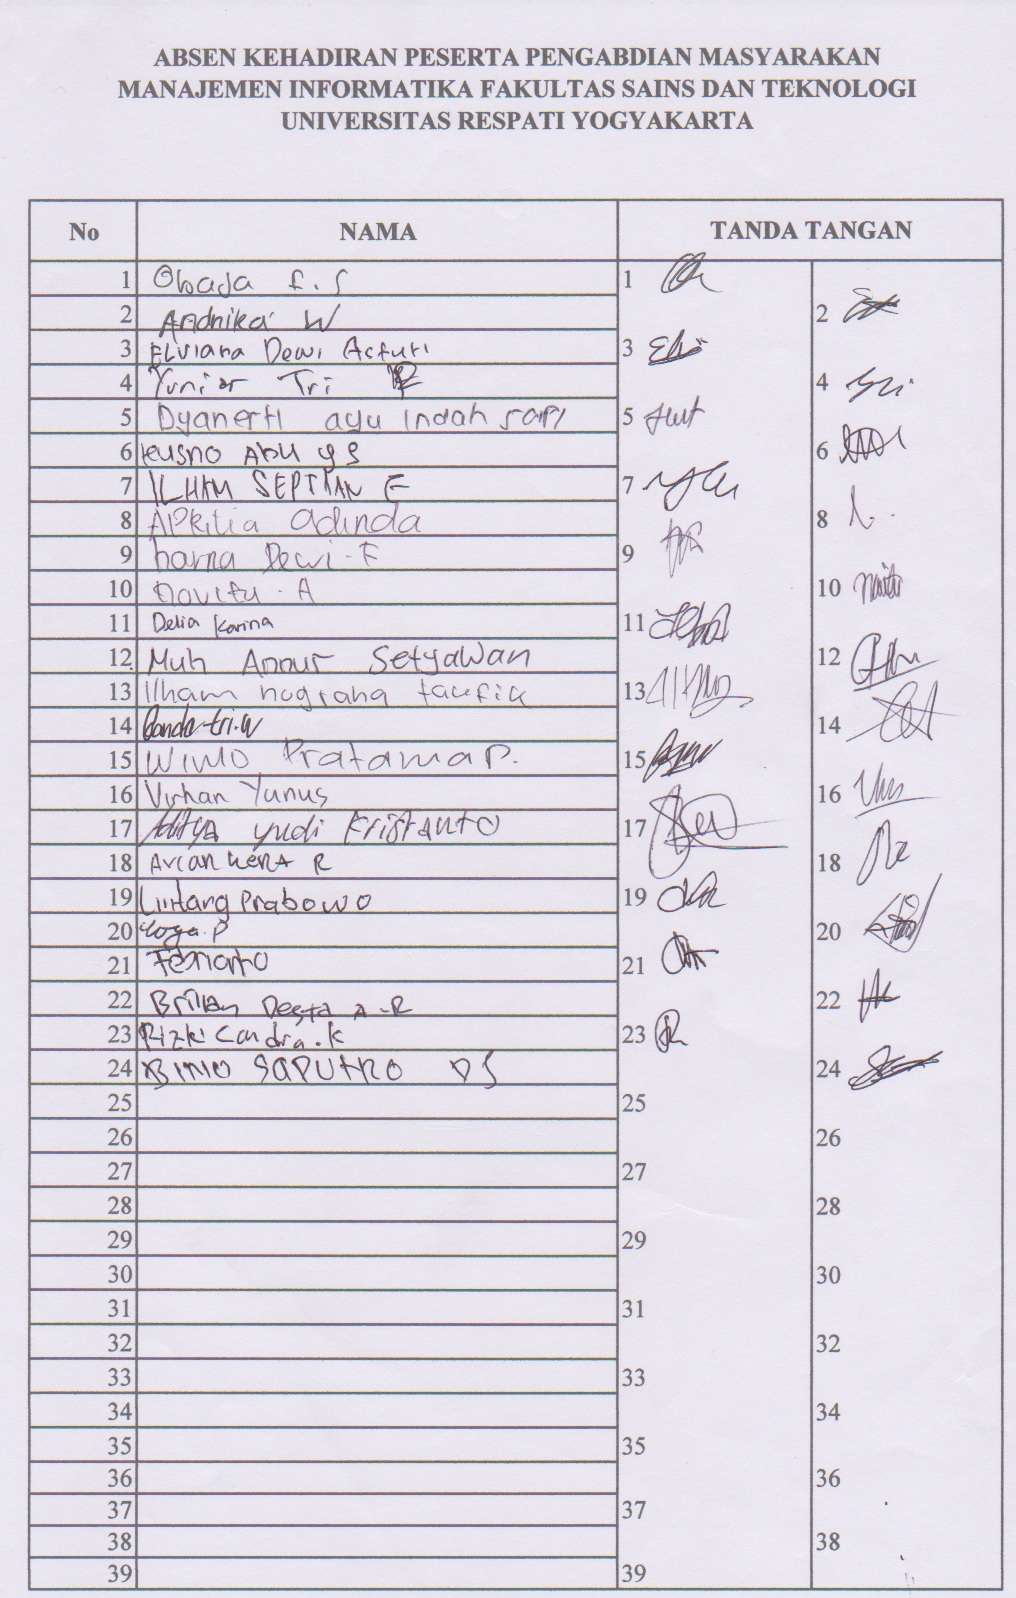 ABSEN KEHADIRAN PESERTA PENGABDIAN MASYARAKAN
MANAJEMEN INFORMATIKA FAKULTAS SAINS DAN TEKNOLOGI
UNIVERSITAS RESPATI YOGYAKARTA
No NAMA TANDA TANGAN
1 Obaja F.S 1
2 Andhika W 2
3 Elviana Dewi 3
4 Yuniar Tri 4
5 Dyanerti ayu Indah sari 5
6 Kusno ABU YS 6
7 ILHAM SEPTIAN F 7
8 APRilia adinda 8
9 Dewi.F 9
10 Novita.A 10
11 Delia Karina 11
12 Muh Annur SetyaWan 12
13 Ilham nugraha taufik 13
14 tri.w 14
15 Pratama P. 15
16 Virhan Yunus 16
17 Aditya yudi KristantO 17
18 R 18
19 Lintang PraboWo 19
20 Yoga.P 20
21 Febrianto 21
22 Desta A.R 22
23 Rizki Candra.K 23
24 BIMO SAPUTRO DS 24
25 25
26 26
27 27
28 28
29 29
30 30
31 31
32 32
33 33
34 34
35 35
36 36
37 37
38 38
39 39